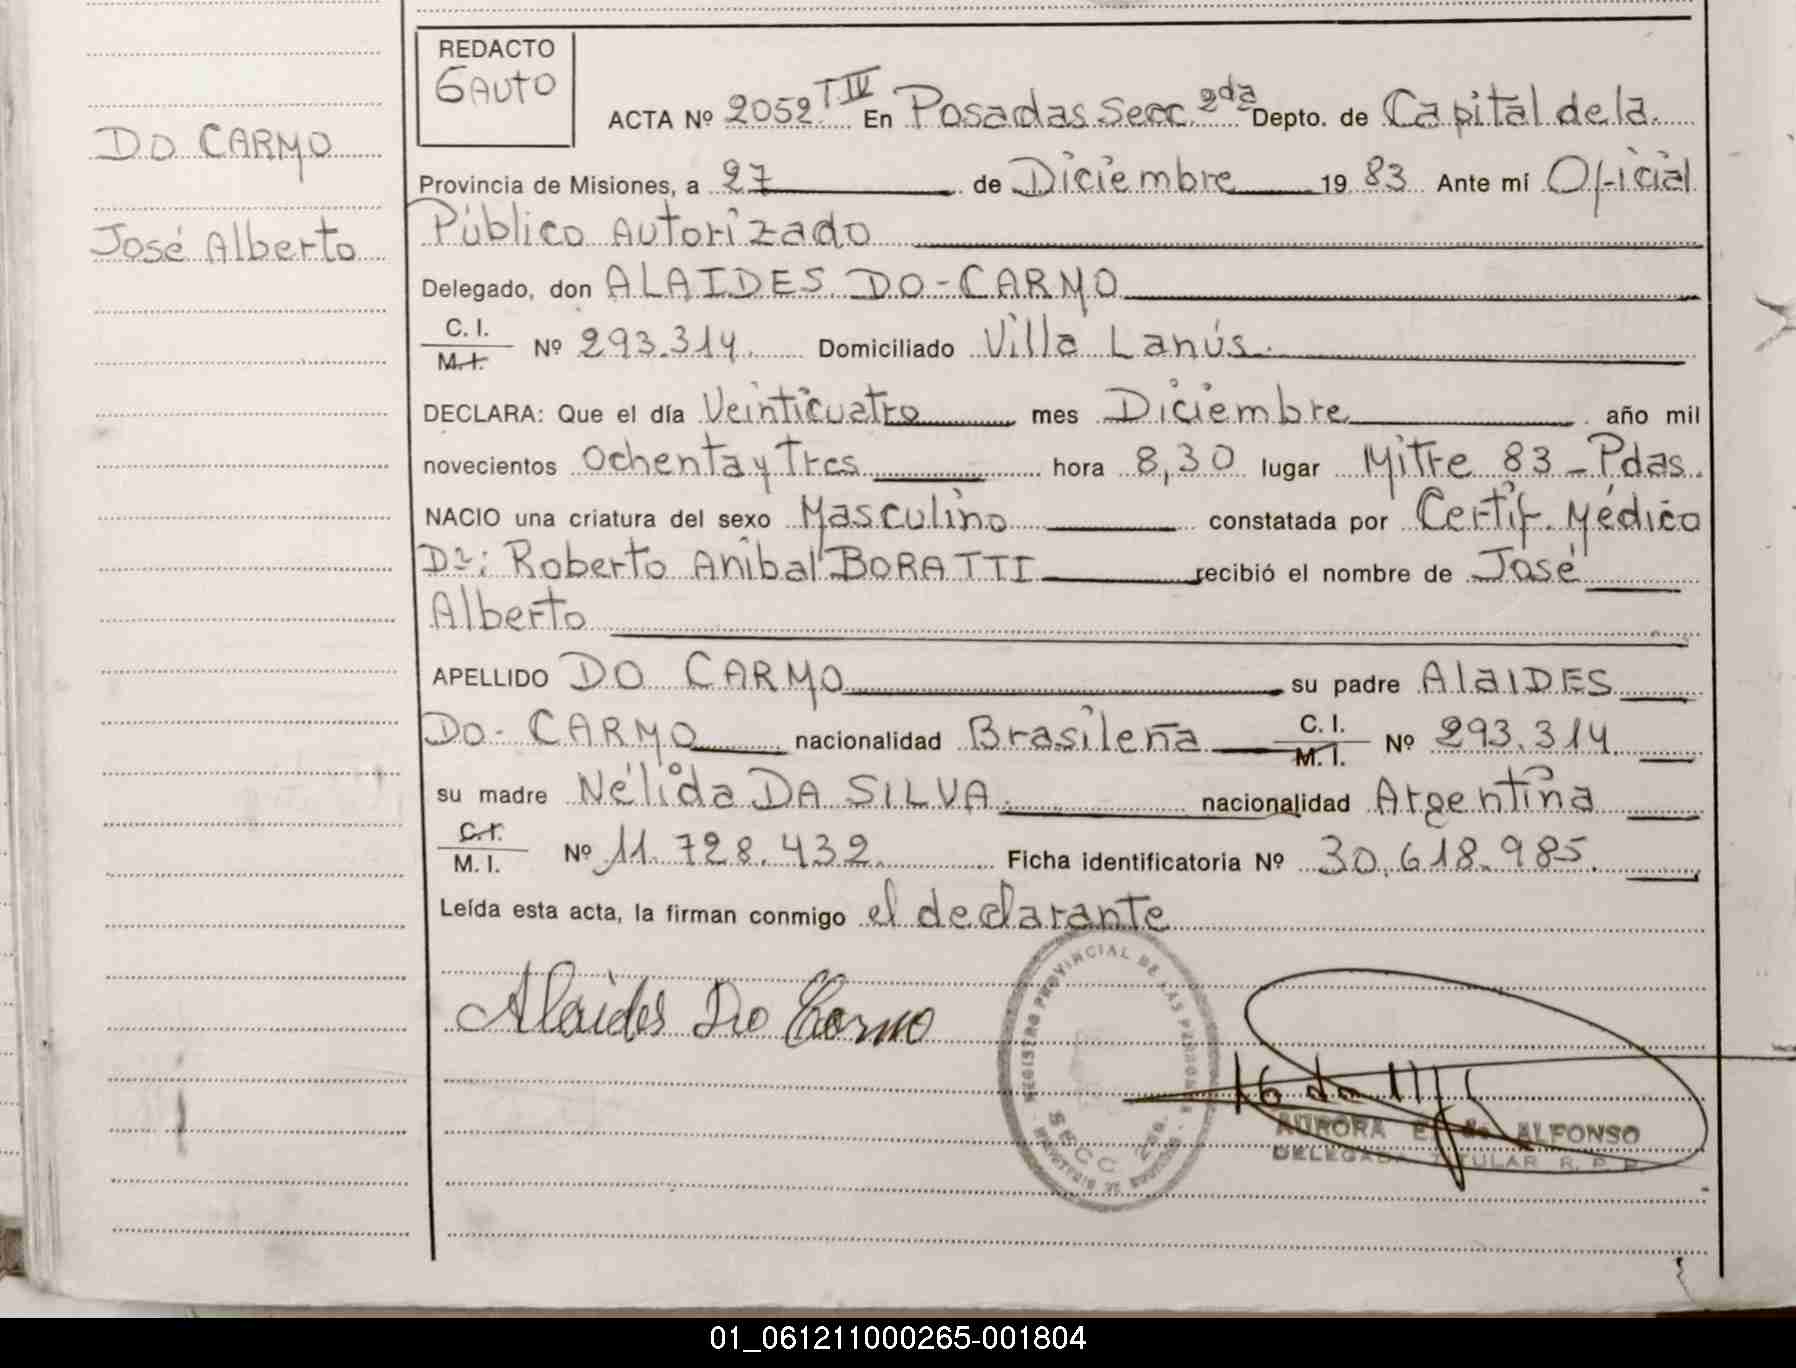 REDACTO
GAUTO
DO CARMO
José Alberto
ACTA Nº 2052 T IV En Posadas Secc. 2da Depto. de Capital de la
Provincia de Misiones, a 27 de Diciembre 19 83 Ante mí Oficial
Público Autorizado
Delegado, don ALAIDES DO-CARMO
C. I.
M. I. Nº 293.314. Domiciliado Villa Lanús.
DECLARA: Que el día Veinticuatro mes Diciembre año mil
novecientos Ochenta y Tres hora 8,30 lugar Mitre 83 - Pdas.
NACIO una criatura del sexo Masculino constatada por Certif. Médico
Dr: Roberto Anibal BORATTI recibió el nombre de José
Alberto
APELLIDO DO CARMO su padre AlaIDES
DO-CARMO nacionalidad Brasileña C. I. M. I. Nº 293.314
su madre Nélida DA SILVA. nacionalidad Argentina
C. I.
M. I. Nº 11.728.432. Ficha identificatoria Nº 30.618.985.
Leída esta acta, la firman conmigo el declarante
Alaides Do Carmo
REGISTRO PROVINCIAL DE LAS PERSONAS
SECC. 2da.
AURORA E. de ALFONSO
DELEGADA TITULAR R. P. P.
01_061211000265-001804